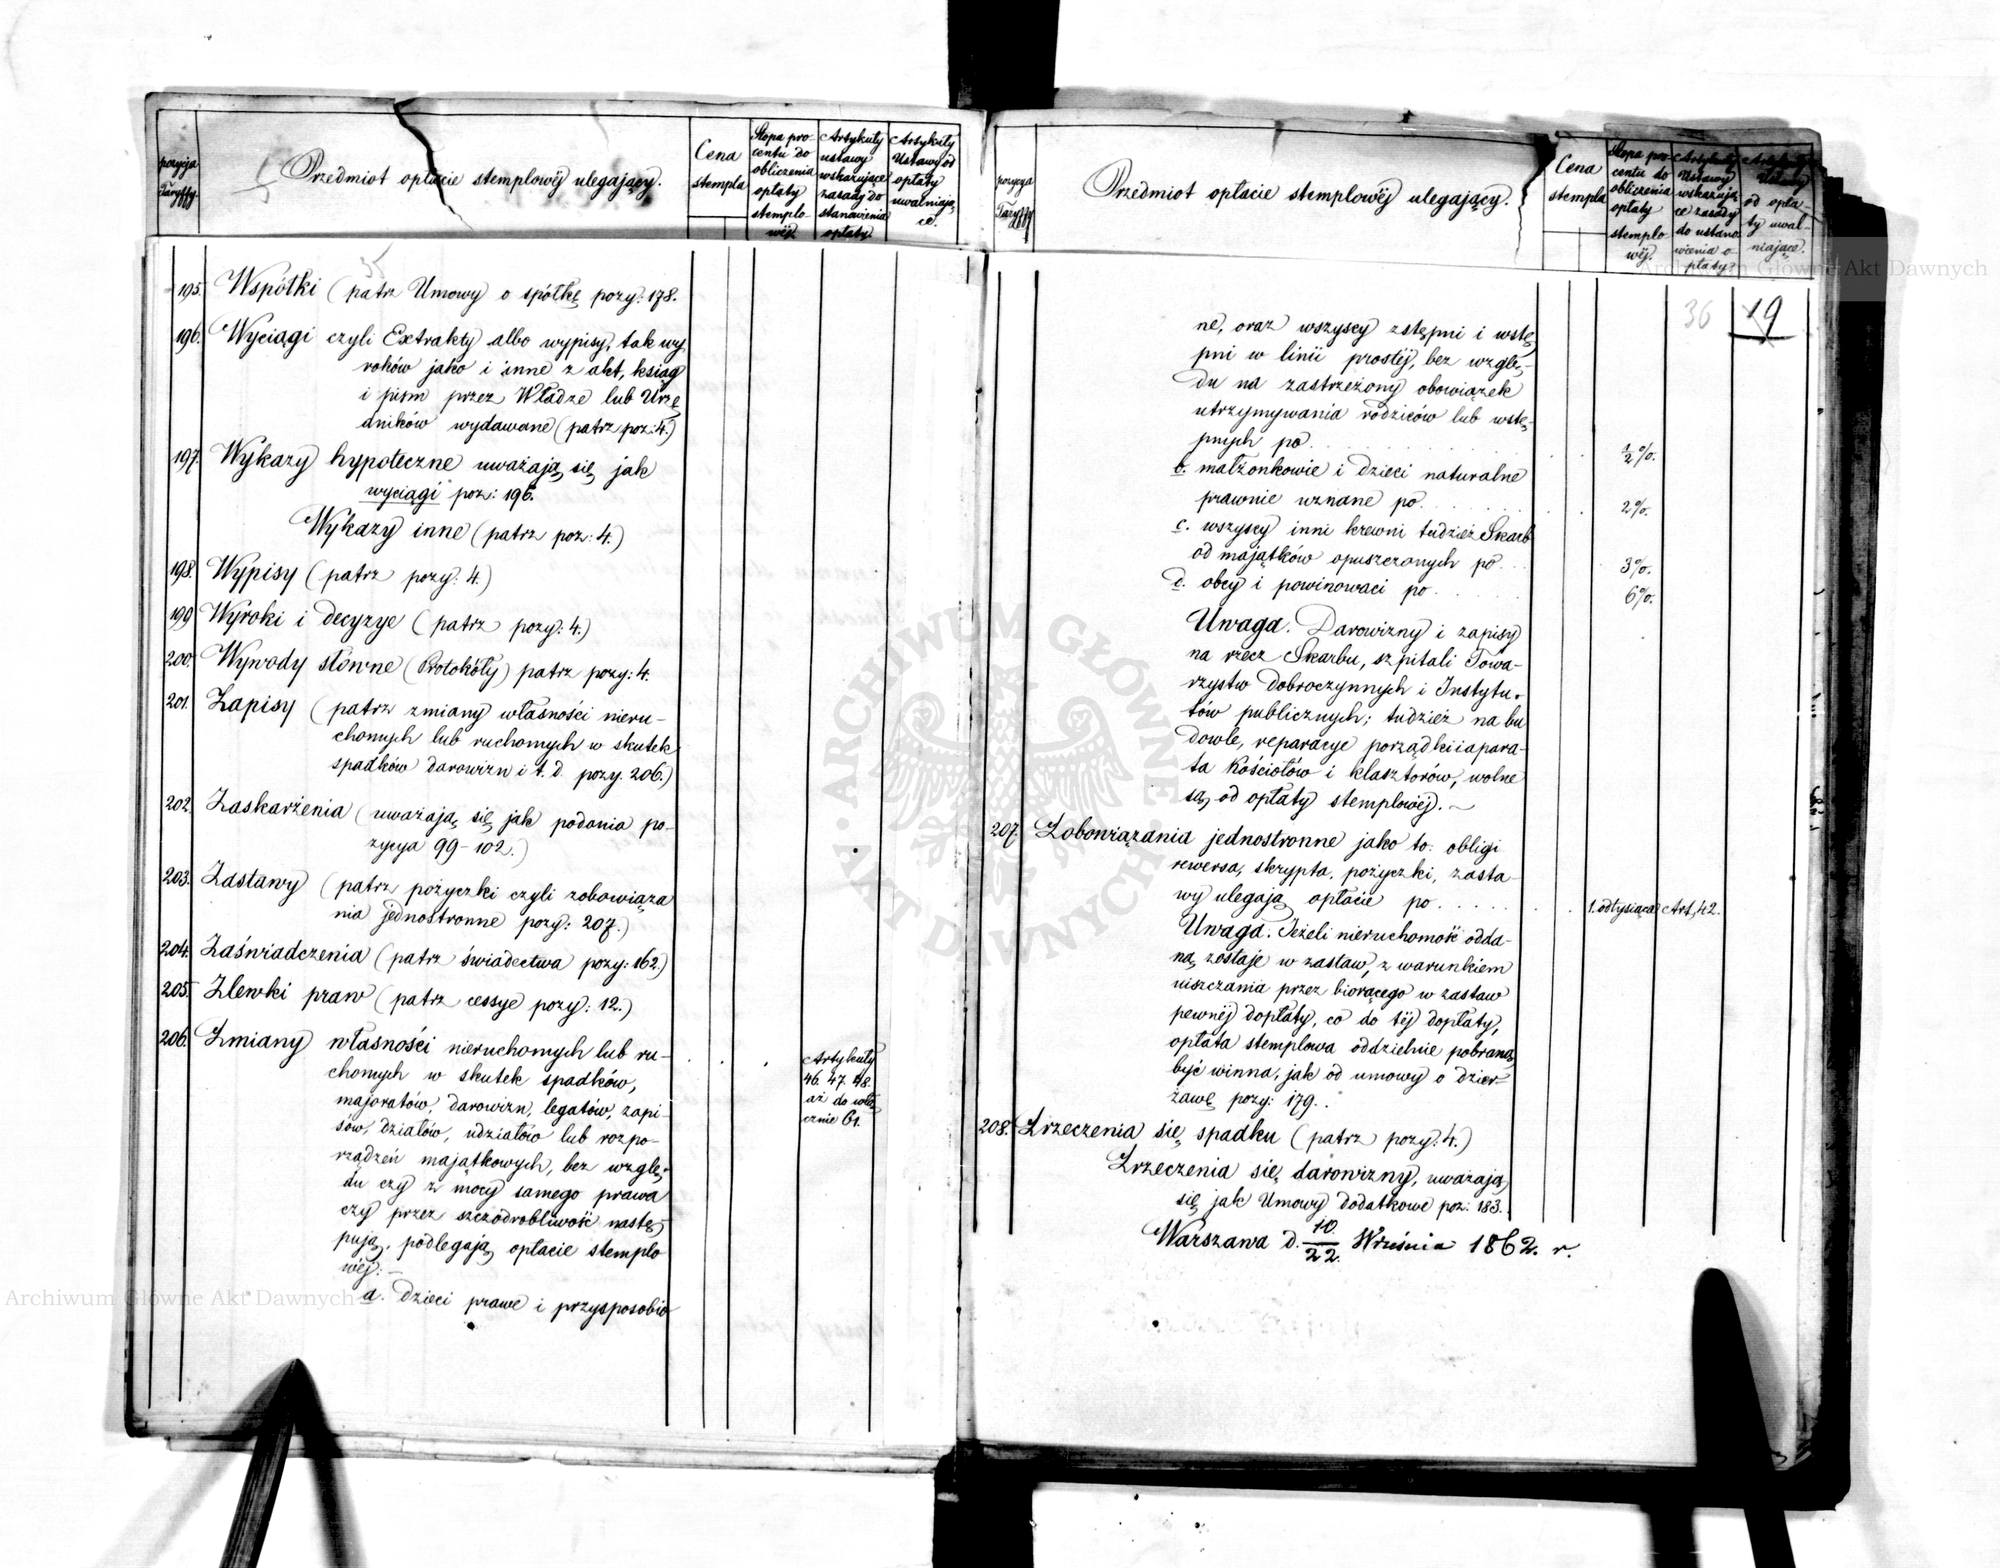 pozycja
Taryffy.
Przedmiot opłacie stemplowéj ulegający.
Cena
stempla
Stopa pro-
centu do
obliczenia
opłaty
stemplo-
wéj.
Artykuły
ustawy
wskazujące
zasady do
stanowienia
opłaty.
Artykuły
Ustawy od
opłaty
uwalniają
ce.
35
195. Wspólki (patrz Umowy o spólkę pozy: 178.
196. Wyciągi czyli Extrakty albo wypisy, tak wy
roków jako i inne z akt, ksiąg
i pism przez Władze lub Urzę
dników wydawane (patrz poz: 4.)
197. Wykazy hypoteczne uważają się jak
wyciągi poz: 196.
Wykazy inne (patrz poz: 4.)
198. Wypisy (patrz pozy: 4.)
199 Wyroki i decyzye (patrz pozy: 4.)
200. Wywody słowne (Protokóły) patrz pozy: 4.
201. Zapisy (patrz zmiany własności nieru-
chomych lub ruchomych w skutek
spadków darowizn i t. d. pozy. 206.)
202. Zaskarżenia (uważają się jak podania po-
zycya 99-102.)
203. Zastawy (patrz pożyczki czyli zobowiąza
nia jednostronne pozy: 207.)
204. Zaświadczenia (patrz świadectwa pozy: 162.)
205. Zlewki praw (patrz cessye pozy: 12.)
206. Zmiany własności nieruchomych lub ru-
chomych w skutek spadków,
majoratów, darowizn, legatów, zapi-
sów, działów, udziałów lub rozpo-
rządzeń majątkowych, bez wzglę-
du czy z mocy samego prawa
czy przez szczodrobliwość nastę-
pują, podlegają opłacie stemplo
wéj:-
a. dzieci prawe i przysposobio
Artykuły
46. 47. 48.
aż do włą
cznie 61.
pozycya
Taryffy
Przedmiot opłacie stemplowéj ulegający.
Cena
stempla
Stopa pro-
centu do
obliczenia
opłaty
stemplo
wéj.
Artykuły
Ustawy
wskazują
ce zasady
do ustano
wienia o-
płaty.
Artykuły
Ustawy
od opła-
ty uwal-
niające.
36 19
ne, oraz wszyscy zstępni i wstę
pni w linii prostéj, bez wzglę-
du na zastrzeżony obowiązek
utrzymywania rodziców lub wstę-
pnych po . . . ½%.
b. małżonkowie i dzieci naturalne
prawnie uznane po . . . 2%.
c. wszyscy inni krewni tudzież Skarb
od majątków opuszczonych po . . . 3%.
d. obcy i powinowaci po . . . 6%.
Uwaga. Darowizny i zapisy
na rzecz Skarbu, szpitali Towa-
rzystw dobroczynnych i Instytu-
tów publicznych; tudzież na bu
dowle, reparacye porządki i apara-
ta Kościołów i klasztorów, wolne
są od opłaty stemplowéj.
207. Zobowiązania jednostronne jako to: obligi
rewersa, skrypta, pożyczki, zasta-
wy ulegają opłacie po . . . 1. od tysiąca Art, 42.
Uwaga. Jeżeli nieruchomość odda-
ną zostaje w zastaw, z warunkiem
uiszczania przez biorącego w zastaw
pewnéj dopłaty, co do téj dopłaty,
opłata stemplowa oddzielnie pobraną
być winna, jak od umowy o dzier-
żawę pozy: 179.
208. Zrzeczenia się spadku (patrz pozy: 4.)
Zrzeczenia się darowizny, uważają
się jak Umowy dodatkowe poz: 183.
Warszawa d. 10/22. Września 1862. r.
Archiwum Główne Akt Dawnych
Archiwum Główne Akt Dawnych
ARCHIWUM GŁÓWNE AKT DAWNYCH